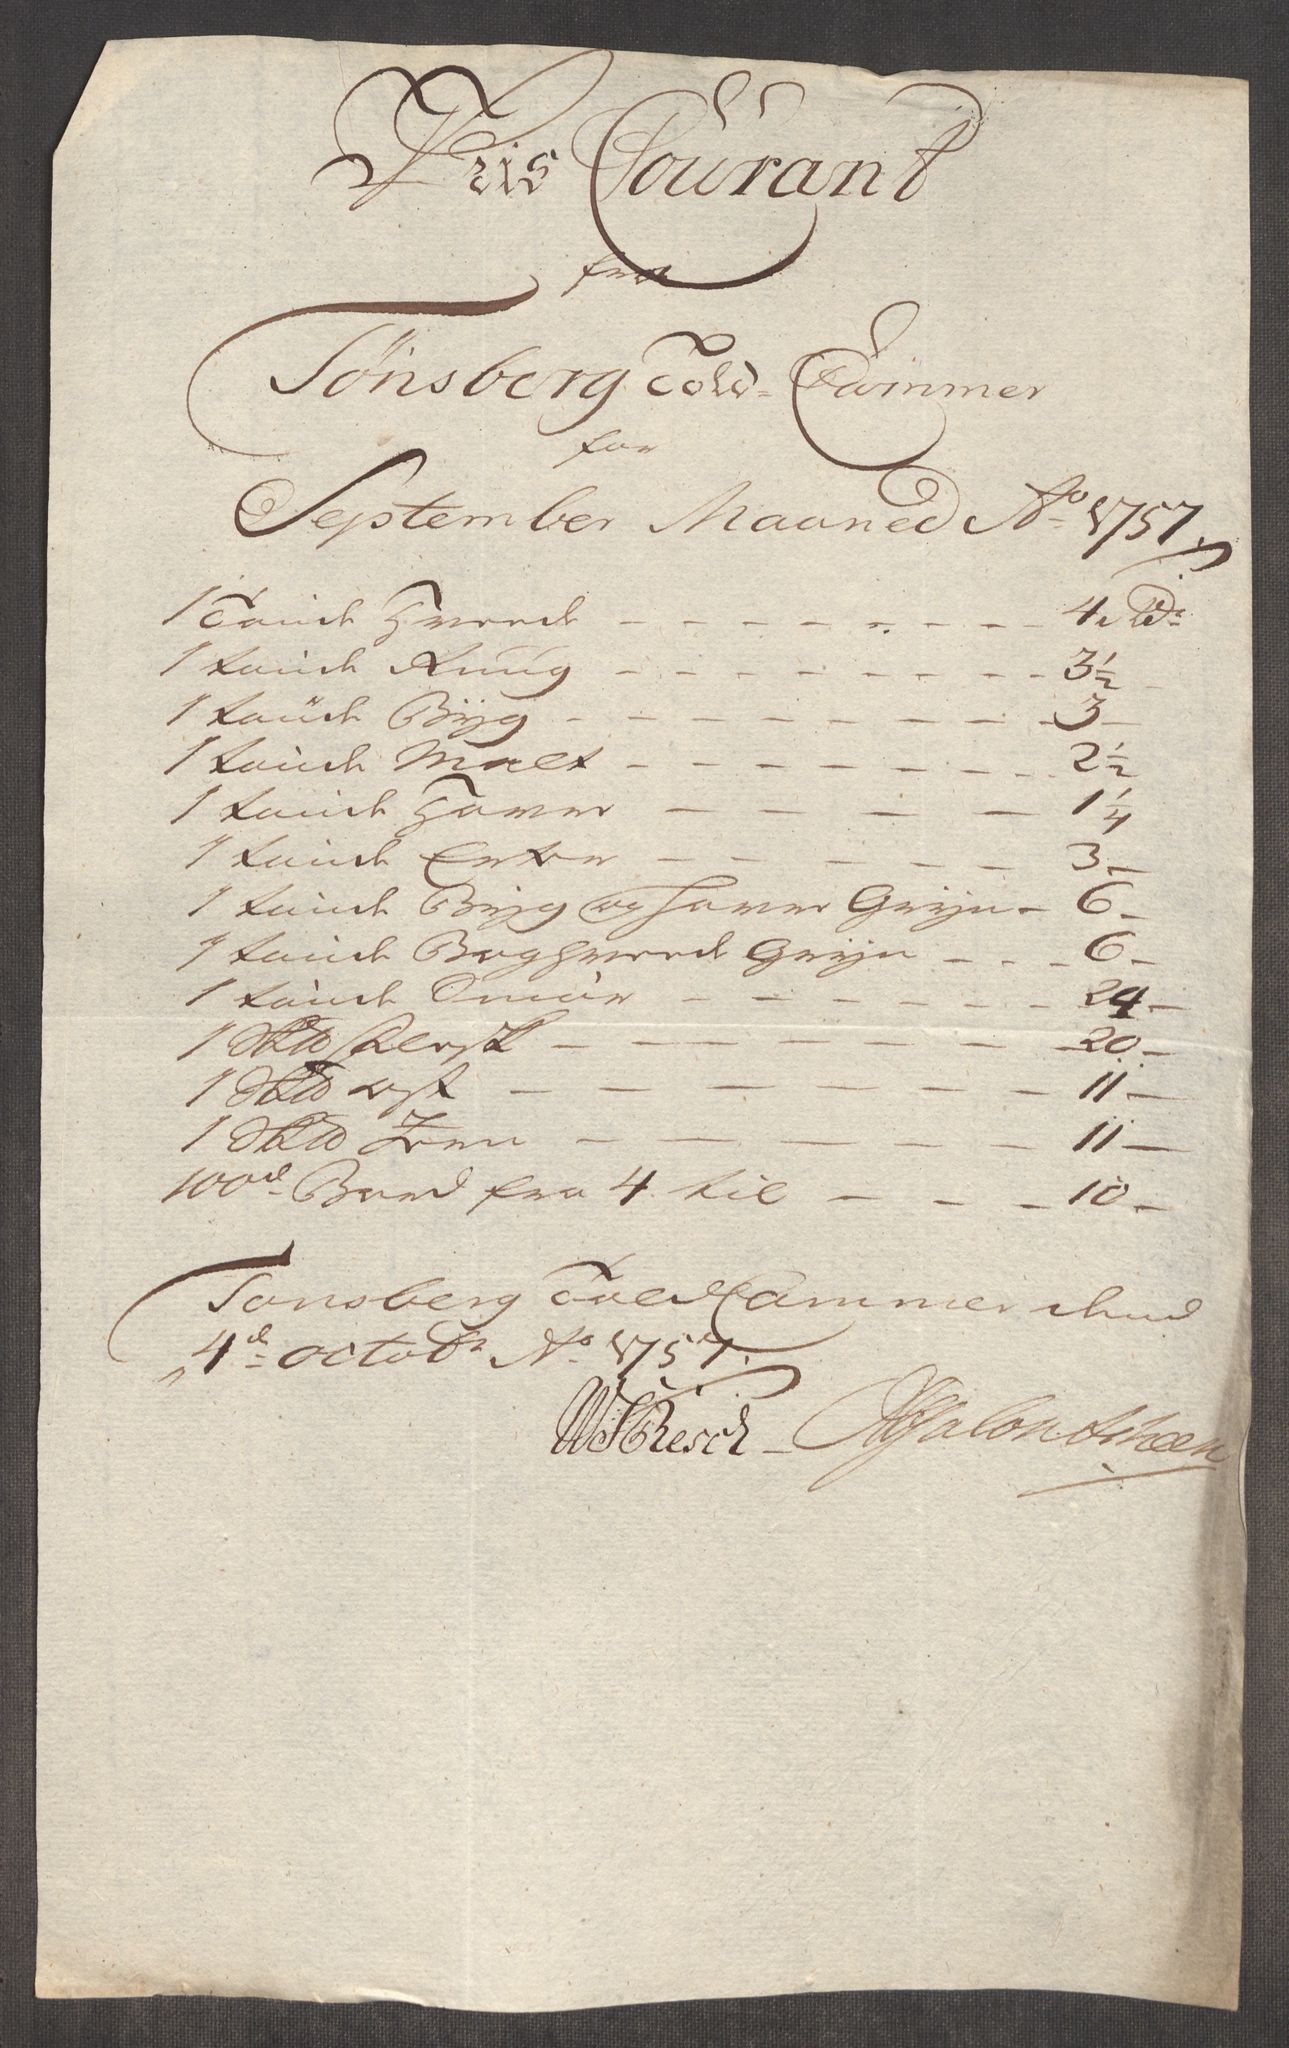 Pris Courant
fra
Tönsberg Told-Cammer
for
September Maaned Ao 1757.
1 Tønde Hvede - - - - - - - - 4 Rd.
1 tønde Rüug - - - - - - - - 3 1/2 -
1 tønde Bÿg - - - - - - - - 3 -
1 tønde Malt - - - - - - - - 2 1/2
1 tønde Haver - - - - - 1 1/4
1 tønde Erter - - - - - - 3 -
1 tønde Bÿg og Haver Grÿn - 6 -
1 tønde Boghvede Grÿn - - - 6 -
1 tønde Smör - - - - - - 24 -
1 Skd Flesk - - - - - - 20 -
1 Skd ost - - - - - - 11 -
1 Skd - - - - - 11 -
100d Bord fra 4 til - - - 10 -
Tonsberg Told Cammer dend
4de octobr Ao 1757.